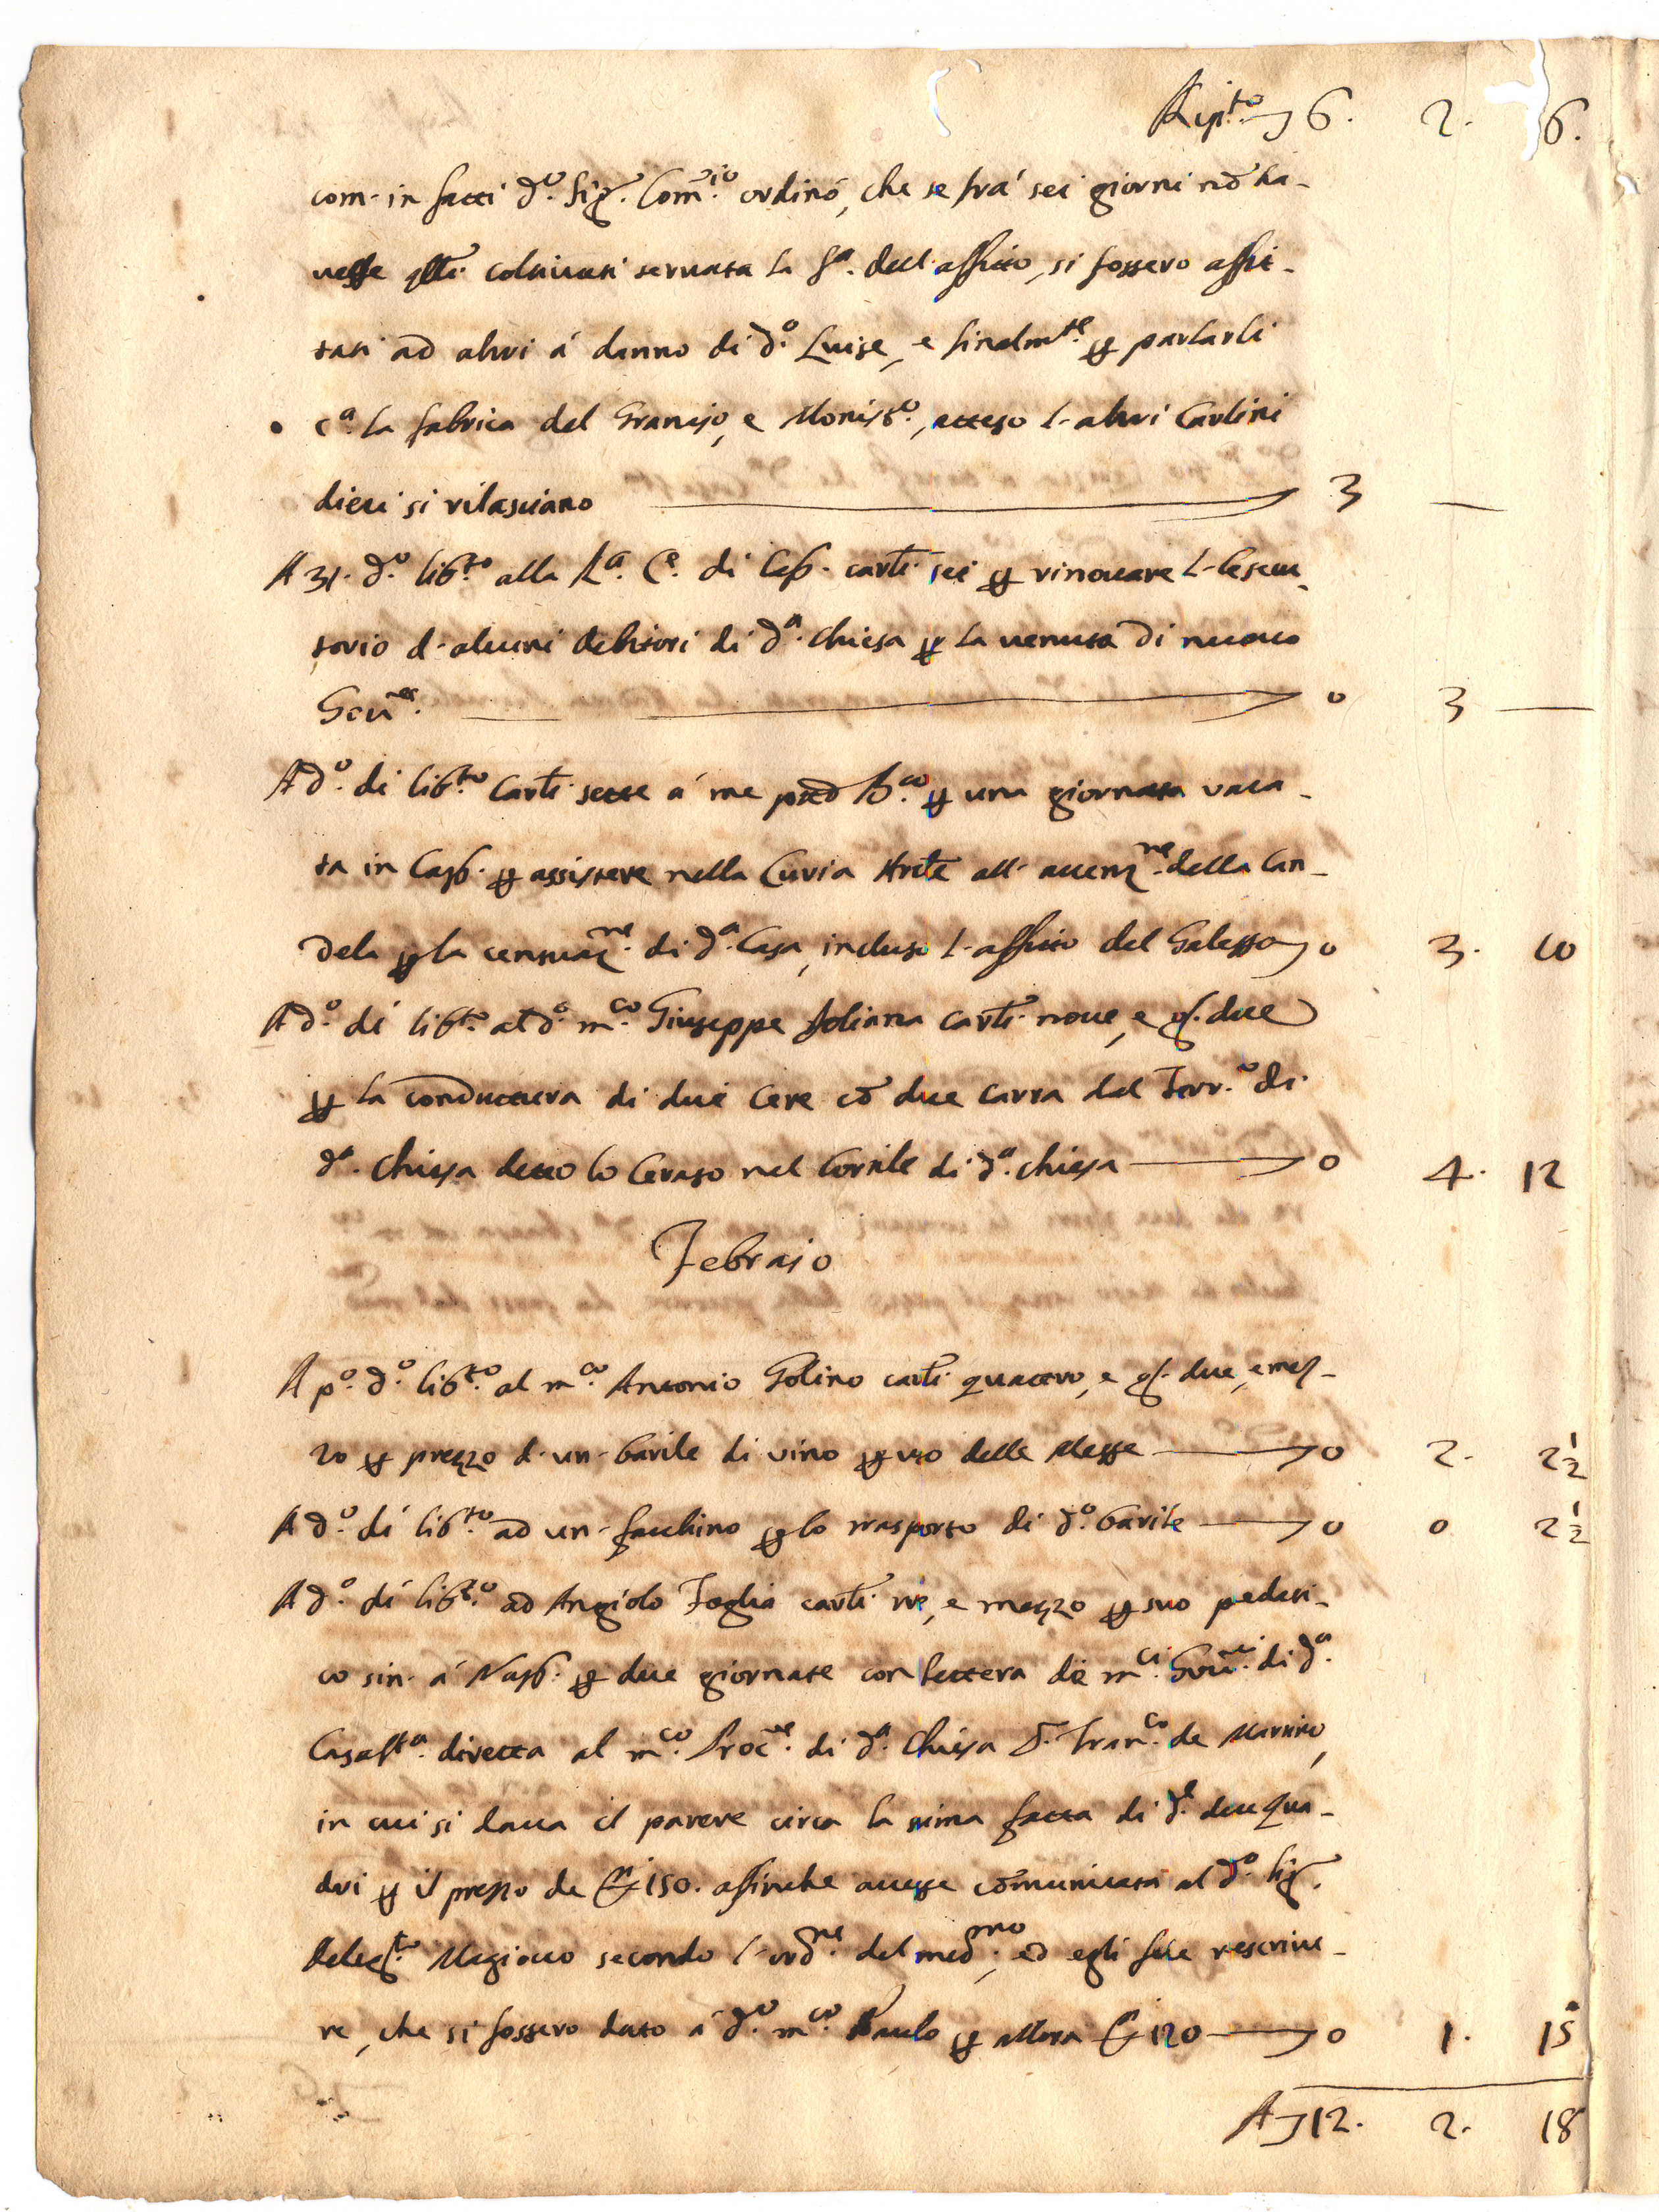 Rip.to 6. 2. 16.
com' in fatti d.o Sig.r Com.rio ordinò, che se frà sei giorni nõ ha-
vesse coltivati servata la f.a dell'affitto, si fossero affit-
tati ad altri à danno di d.o Luise, e finalm.te per parlarli
c.a la fabrica del Granajo, e Monist.o, atteso l'altri Carlini
dieci si rilasciano 3 —
A 31. d.o lib.to alla R.a C.e di Cap. carl. sei per rinovare l'esecu-
torio d'alcuni debitori di d.a Chiesa per la venuta di nuovo
Gov.re 0 3 —
A d.o di lib.to Carl. sette à me pred.o per una giornata vaca-
ta in Cap. per assistere nella Curia all'accenz.ne della Can-
dela per la censuaz.ne di d.a Casa, incluso l'affitto del Galesso 0 3. 10
A d.o di lib.to al d.o m.co Giuseppe carl. nove, e g. due
per la conduttura di due cõ due carra dal Terr.o di
d.a Chiesa detto lo Ceraso nel Cortile di d.a Chiesa 0 4. 12
Febraio
A p.o d.o lib.to al m.co Antonio Golino carl. quattro, e g. due, e mez-
zo per prezzo d'un' barile di vino per uso delle Messe 0 2. 2½
A d.o di lib.to ad un' facchino per lo trasporto di d.o barile 0 0 2½
A d.o di lib.to ad Angiolo Foglia carl. tre, e mezzo per suo pedati-
co sin' à Nap. per due giornate con lettera de m.ci Gov.ri di d.a
Casa S.ta diretta al m.co Proc.re di d.a Chiesa D. Fran.co de Marino,
in cui si dava il parere circa la stima fatta di d.i due qua-
dri per il prezzo de 150. affinche avesse comunicata al d.o Sig.r
Deleg.to Magiocco secondo l'ord.ne del med.mo, ed egli fece rescrive-
re, che si fossero dato à d.o m.co Paulo per allora 120 0 1. 15
A 12. 2. 18